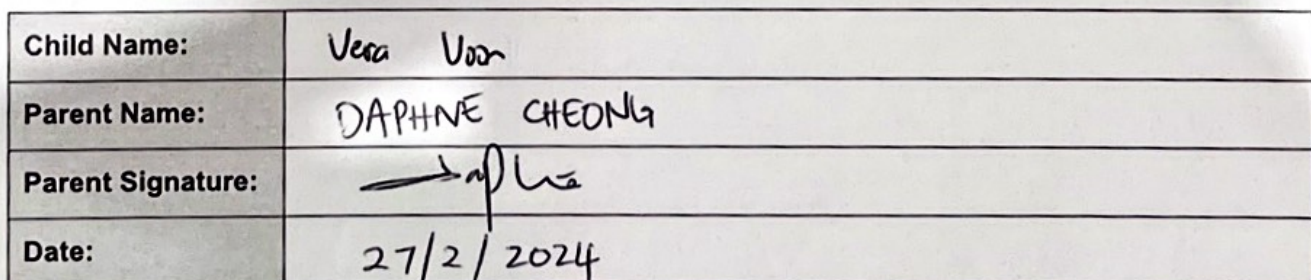 Child Name: Vera Voon
Parent Name: DAPHNE CHEONG
Parent Signature:
Date: 27/2/2024